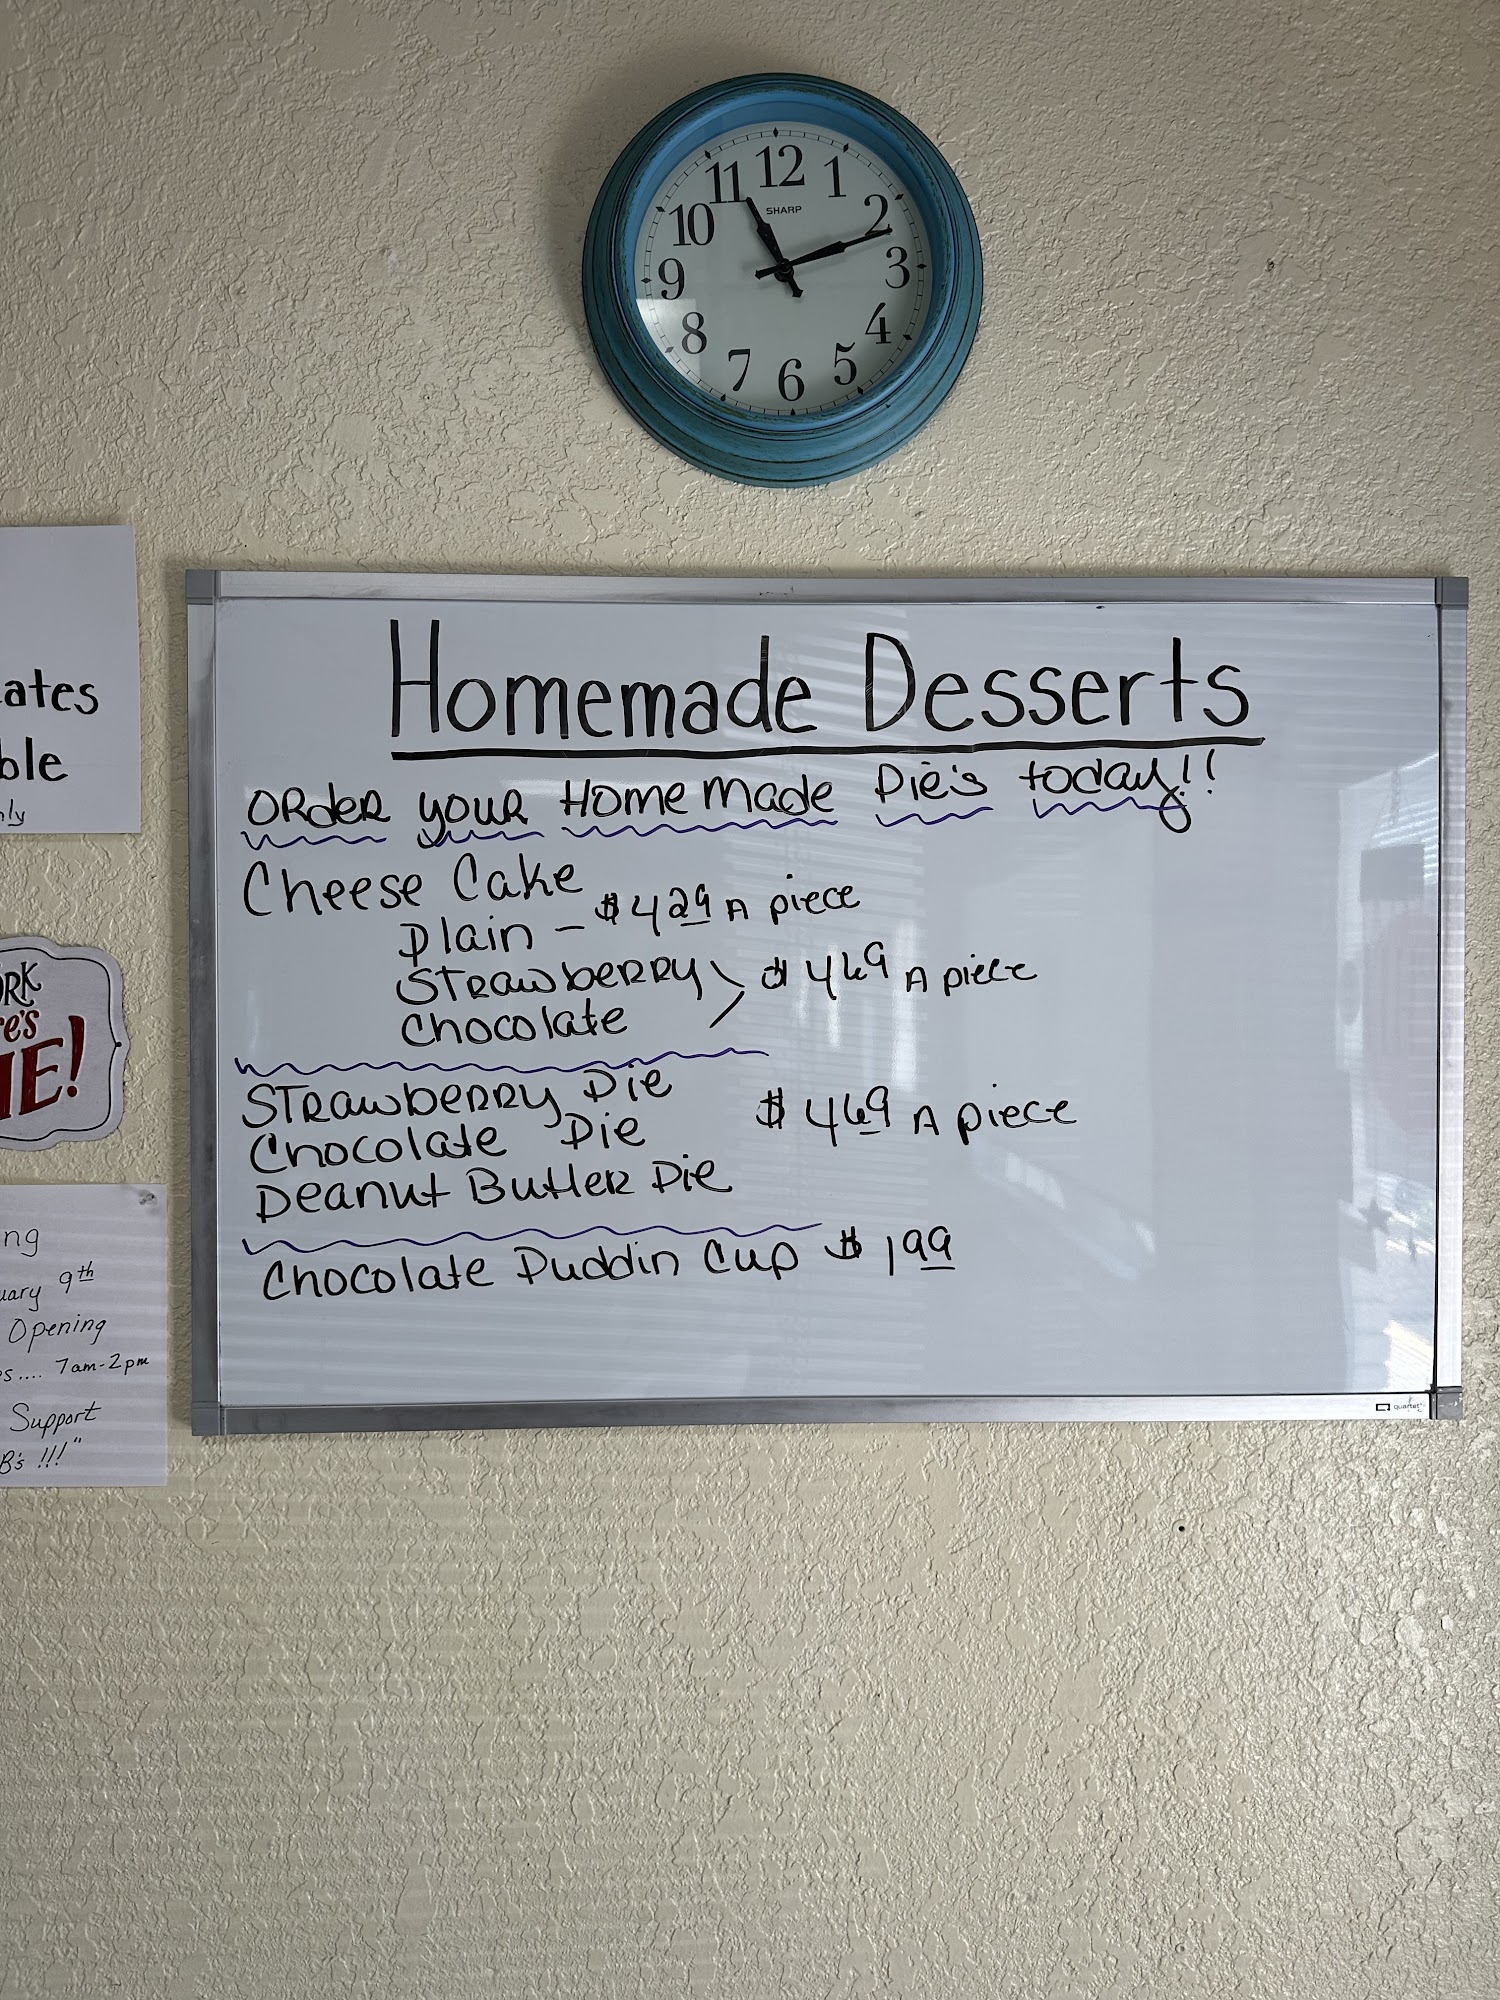 12
1
2
3
4
5
6
7
8
9
10
11
SHARP
ates
ble
nly
Homemade Desserts
Order your Home made Pie's today!!
Cheese Cake
Plain - $4 29 A piece
Strawberry
Chocolate
$4 69 A piece
Strawberry Pie
Chocolate Pie
Peanut Butter Pie
$4 69 A piece
Chocolate Puddin Cup $1 99
quartet
ORK
re's
IE!
ng
uary 9th
Opening
es.... 7am-2pm
Support
B's !!!"